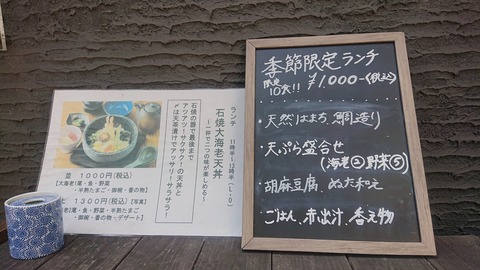 ランチ 11時半~13時半(L.O)
石焼大海老天丼
~一杯で二つの味が楽しめる~
石焼の器で最後まで
アツアツ!サクサク!の天丼と
〆は天茶漬けでアッサリ!サラサラ!
並 1000円(税込)
【大海老1尾・魚・野菜
・半熟たまご・御椀・香の物】
1300円(税込)【写真】
老2尾・魚・野菜・半熟たまご
・御椀・香の物・デザート】
季節限定ランチ
限定
10食!! ¥1,000-(税込)
・天然はまち 鯛造り
・天ぷら盛合せ
(海老②野菜⑤)
・胡麻豆腐、ぬた和え
・ごはん、赤出汁、香え物